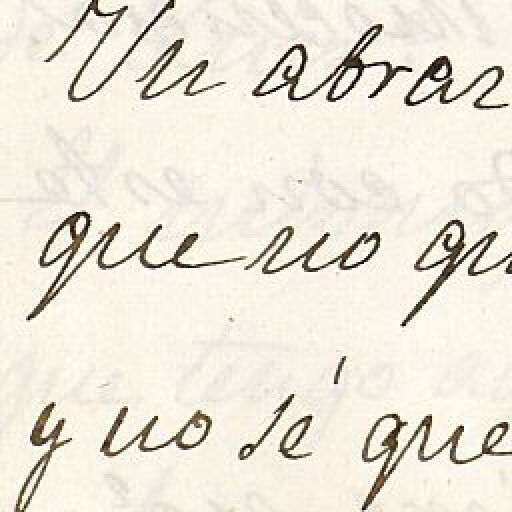 Un abraz
que no qu
y no sé que